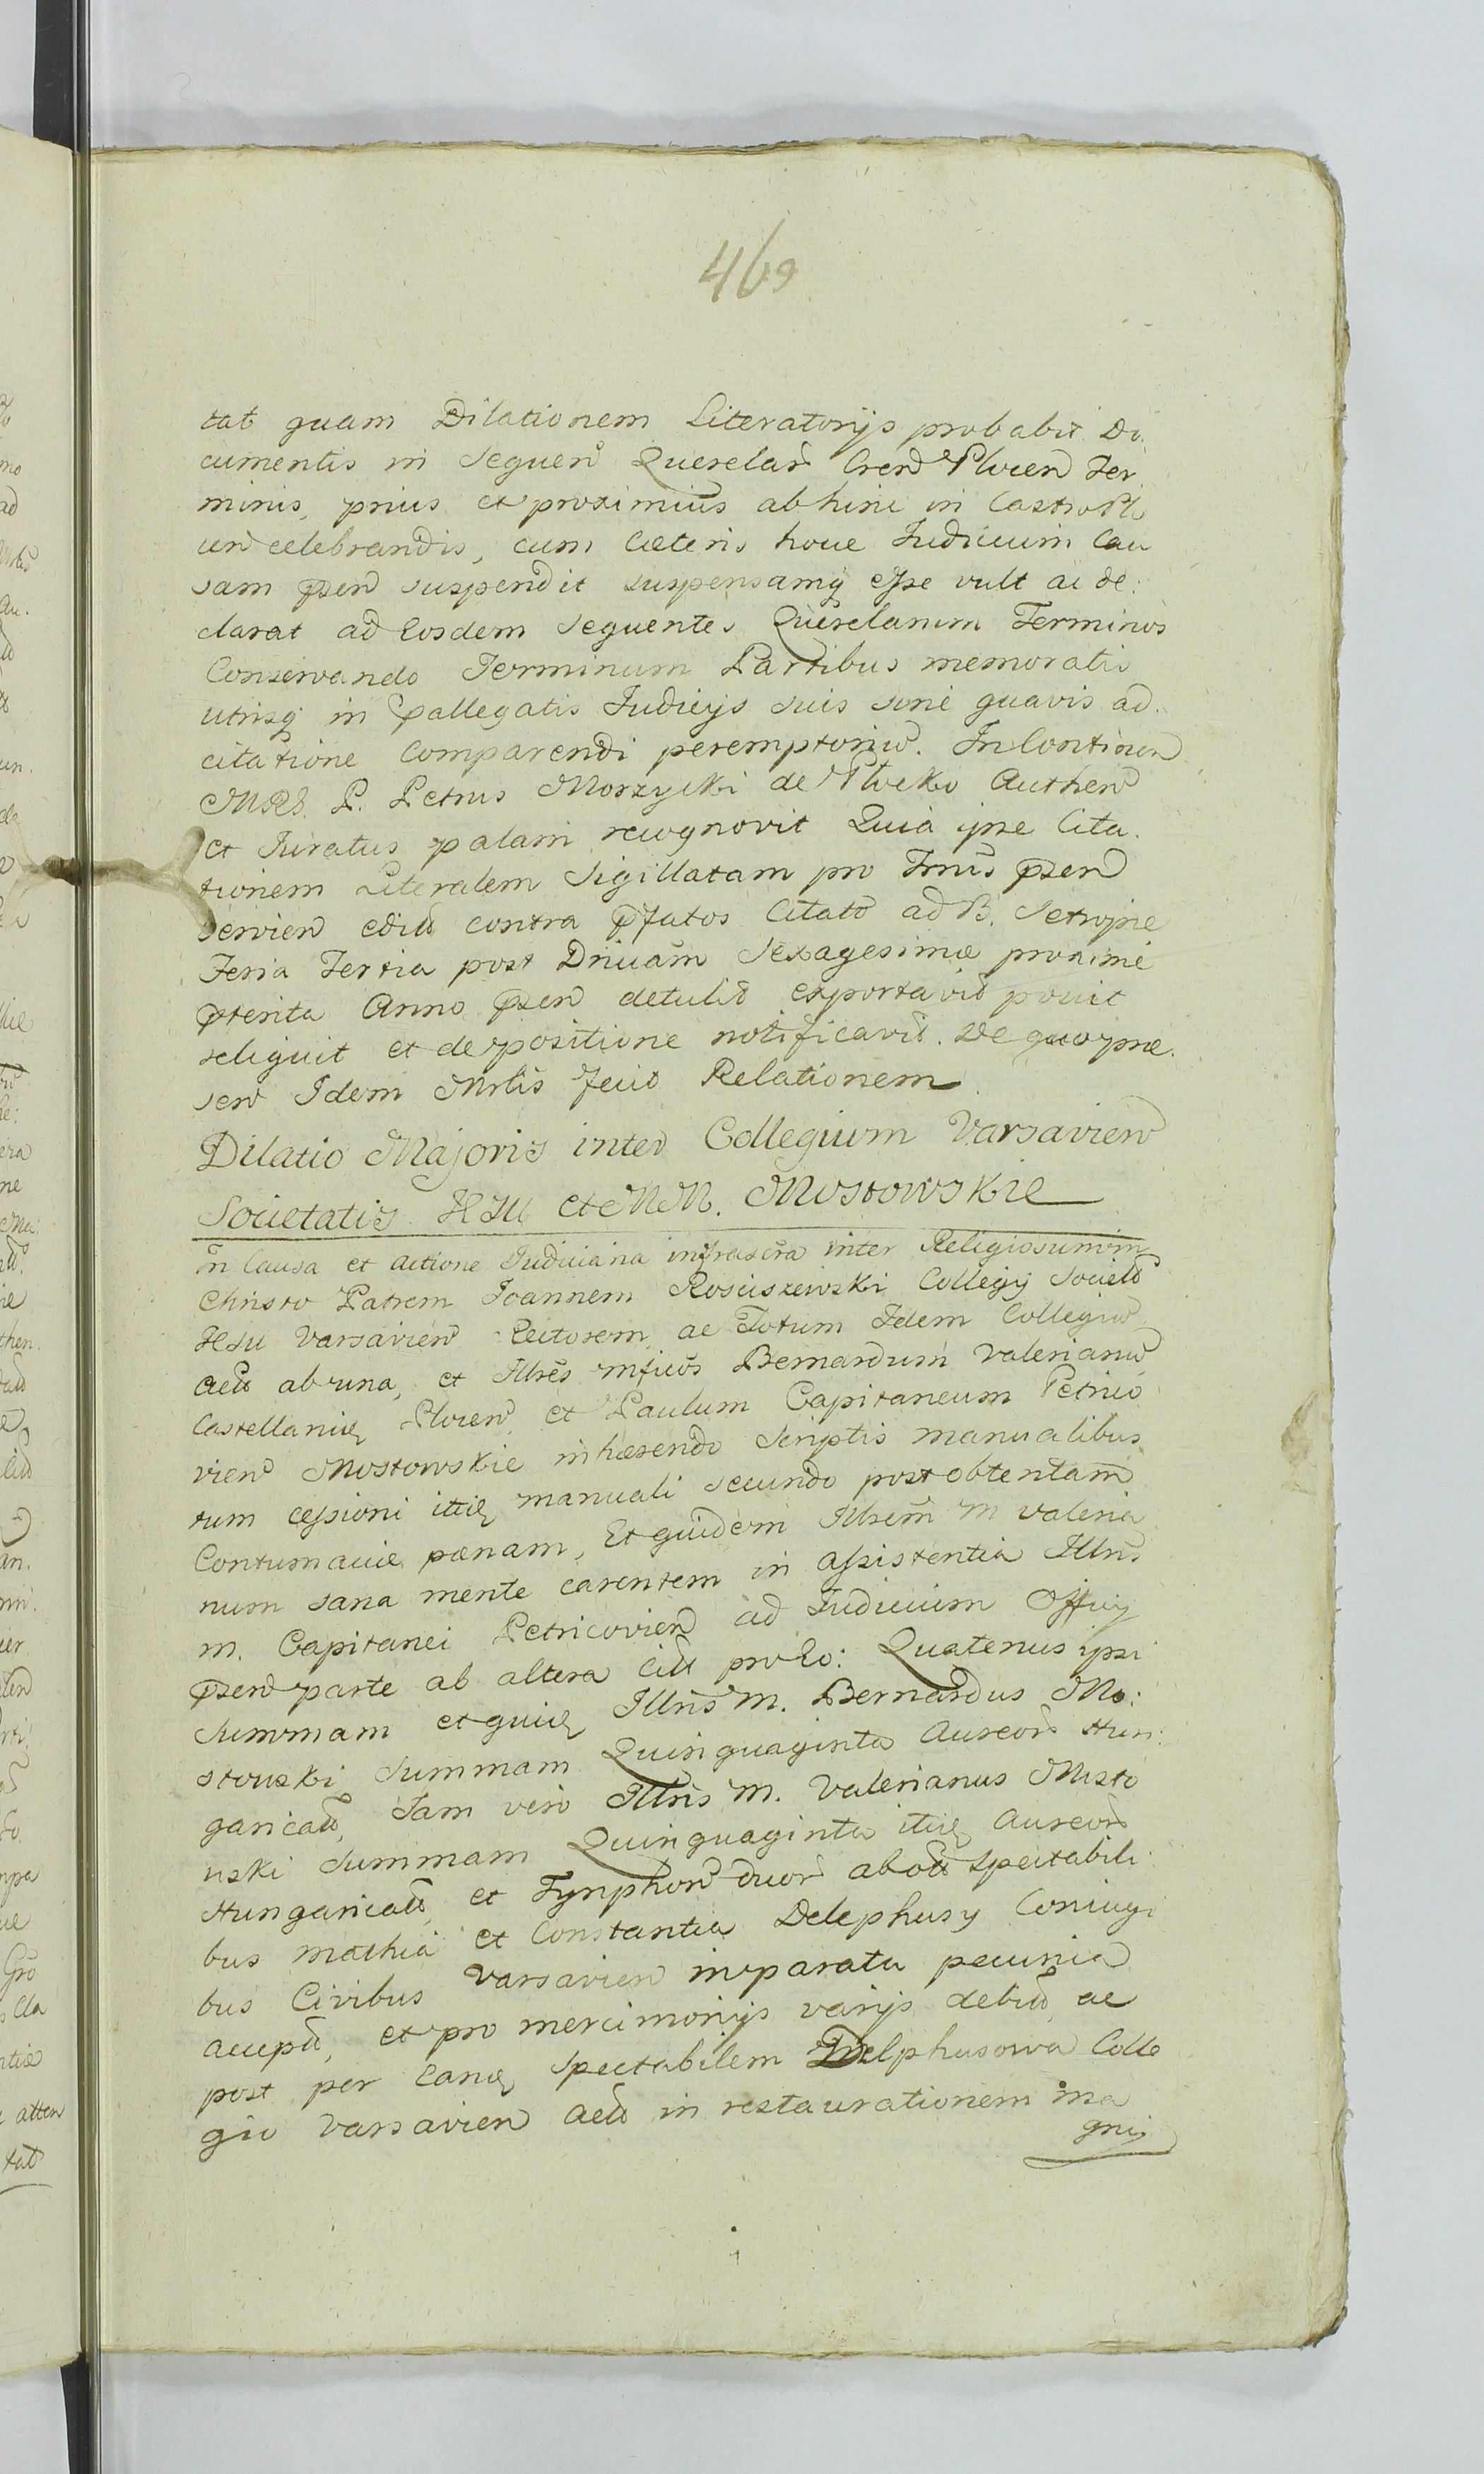 469
tat quam Dilationem Literatorijs probabit Do
cumentis in Sequen Querelar Cren Plocen Ter
minis, prius et proximius abhinc in Castro Plo
cen celebrandis, cum Cæteris hoce Judicium Cau
sam pñsen suspendit suspensamq esse vult ac de:
clarat ad Eosdem Sequentes Querelarum Terminos
Conservando Terminum Partibus memoratis
utrisq in pallegatis Judicijs suis sine quavis ad
citatione Comparendi peremptoriu. In Continen
P. Petrus Morzycki de Plocko Authen
et Juratus palam recognovit Quia ipse Cita
tionem Literalem Sigillatam pro Tmis pñsen
servien contra pfatos Citato ad B.
Feria Tertia post Dnicam Sexagesimæ proxime
pterita Anno pñsen detulit exportavit
reliquit et de positione notificavit. De quo præ
sen Idem Mrlis fecit Relationem
Dilatio Majoris inter Collegium Varsavien
Societatis JESU et MM. Mostowskie
In Causa et Actione Judiciaria infrascra inter Religiosum in
Christo Patrem Joannem Rosciszewski Collegij Societ
JESU Varsavien Rectorem, ac Totum Idem Collegiu
Act ab una, et Illres Mficos Bernardum Valerianu
Castellanicz Plocen, et Paulum Capitaneum Petrico
vien Mostowskie inhærendo Scriptis manualibus
tum cessioni itid manuali secundo post obtentam
Contumaciæ pœnam, Et quidem Illrem M Valeria
num sana mente carentem in assistentia Illris
M. Capitanei Petricovien ad Judicium Officij
pñsen parte ab altera Citt pro Eo: Quatenus ipsi
Summam Illris M. Bernardus Mo:
stowski Summam Quinquaginta Aureor Hun:
garical, Tam vero Illris M. Valerianus Mosto
wski Summam Quinquaginta itid Aureor
Hungarical, et Tynphon duor ab Spectabili
bus Mathia et Constantia Delephusy Coniugi
bus Civibus Varsavien in parata pecunia
accept, et pro mercimonijs varijs debit, ac
post per Eand Spectabilem Delphusowa Colle
gio Varsavien Act in restaurationem ma
gnij